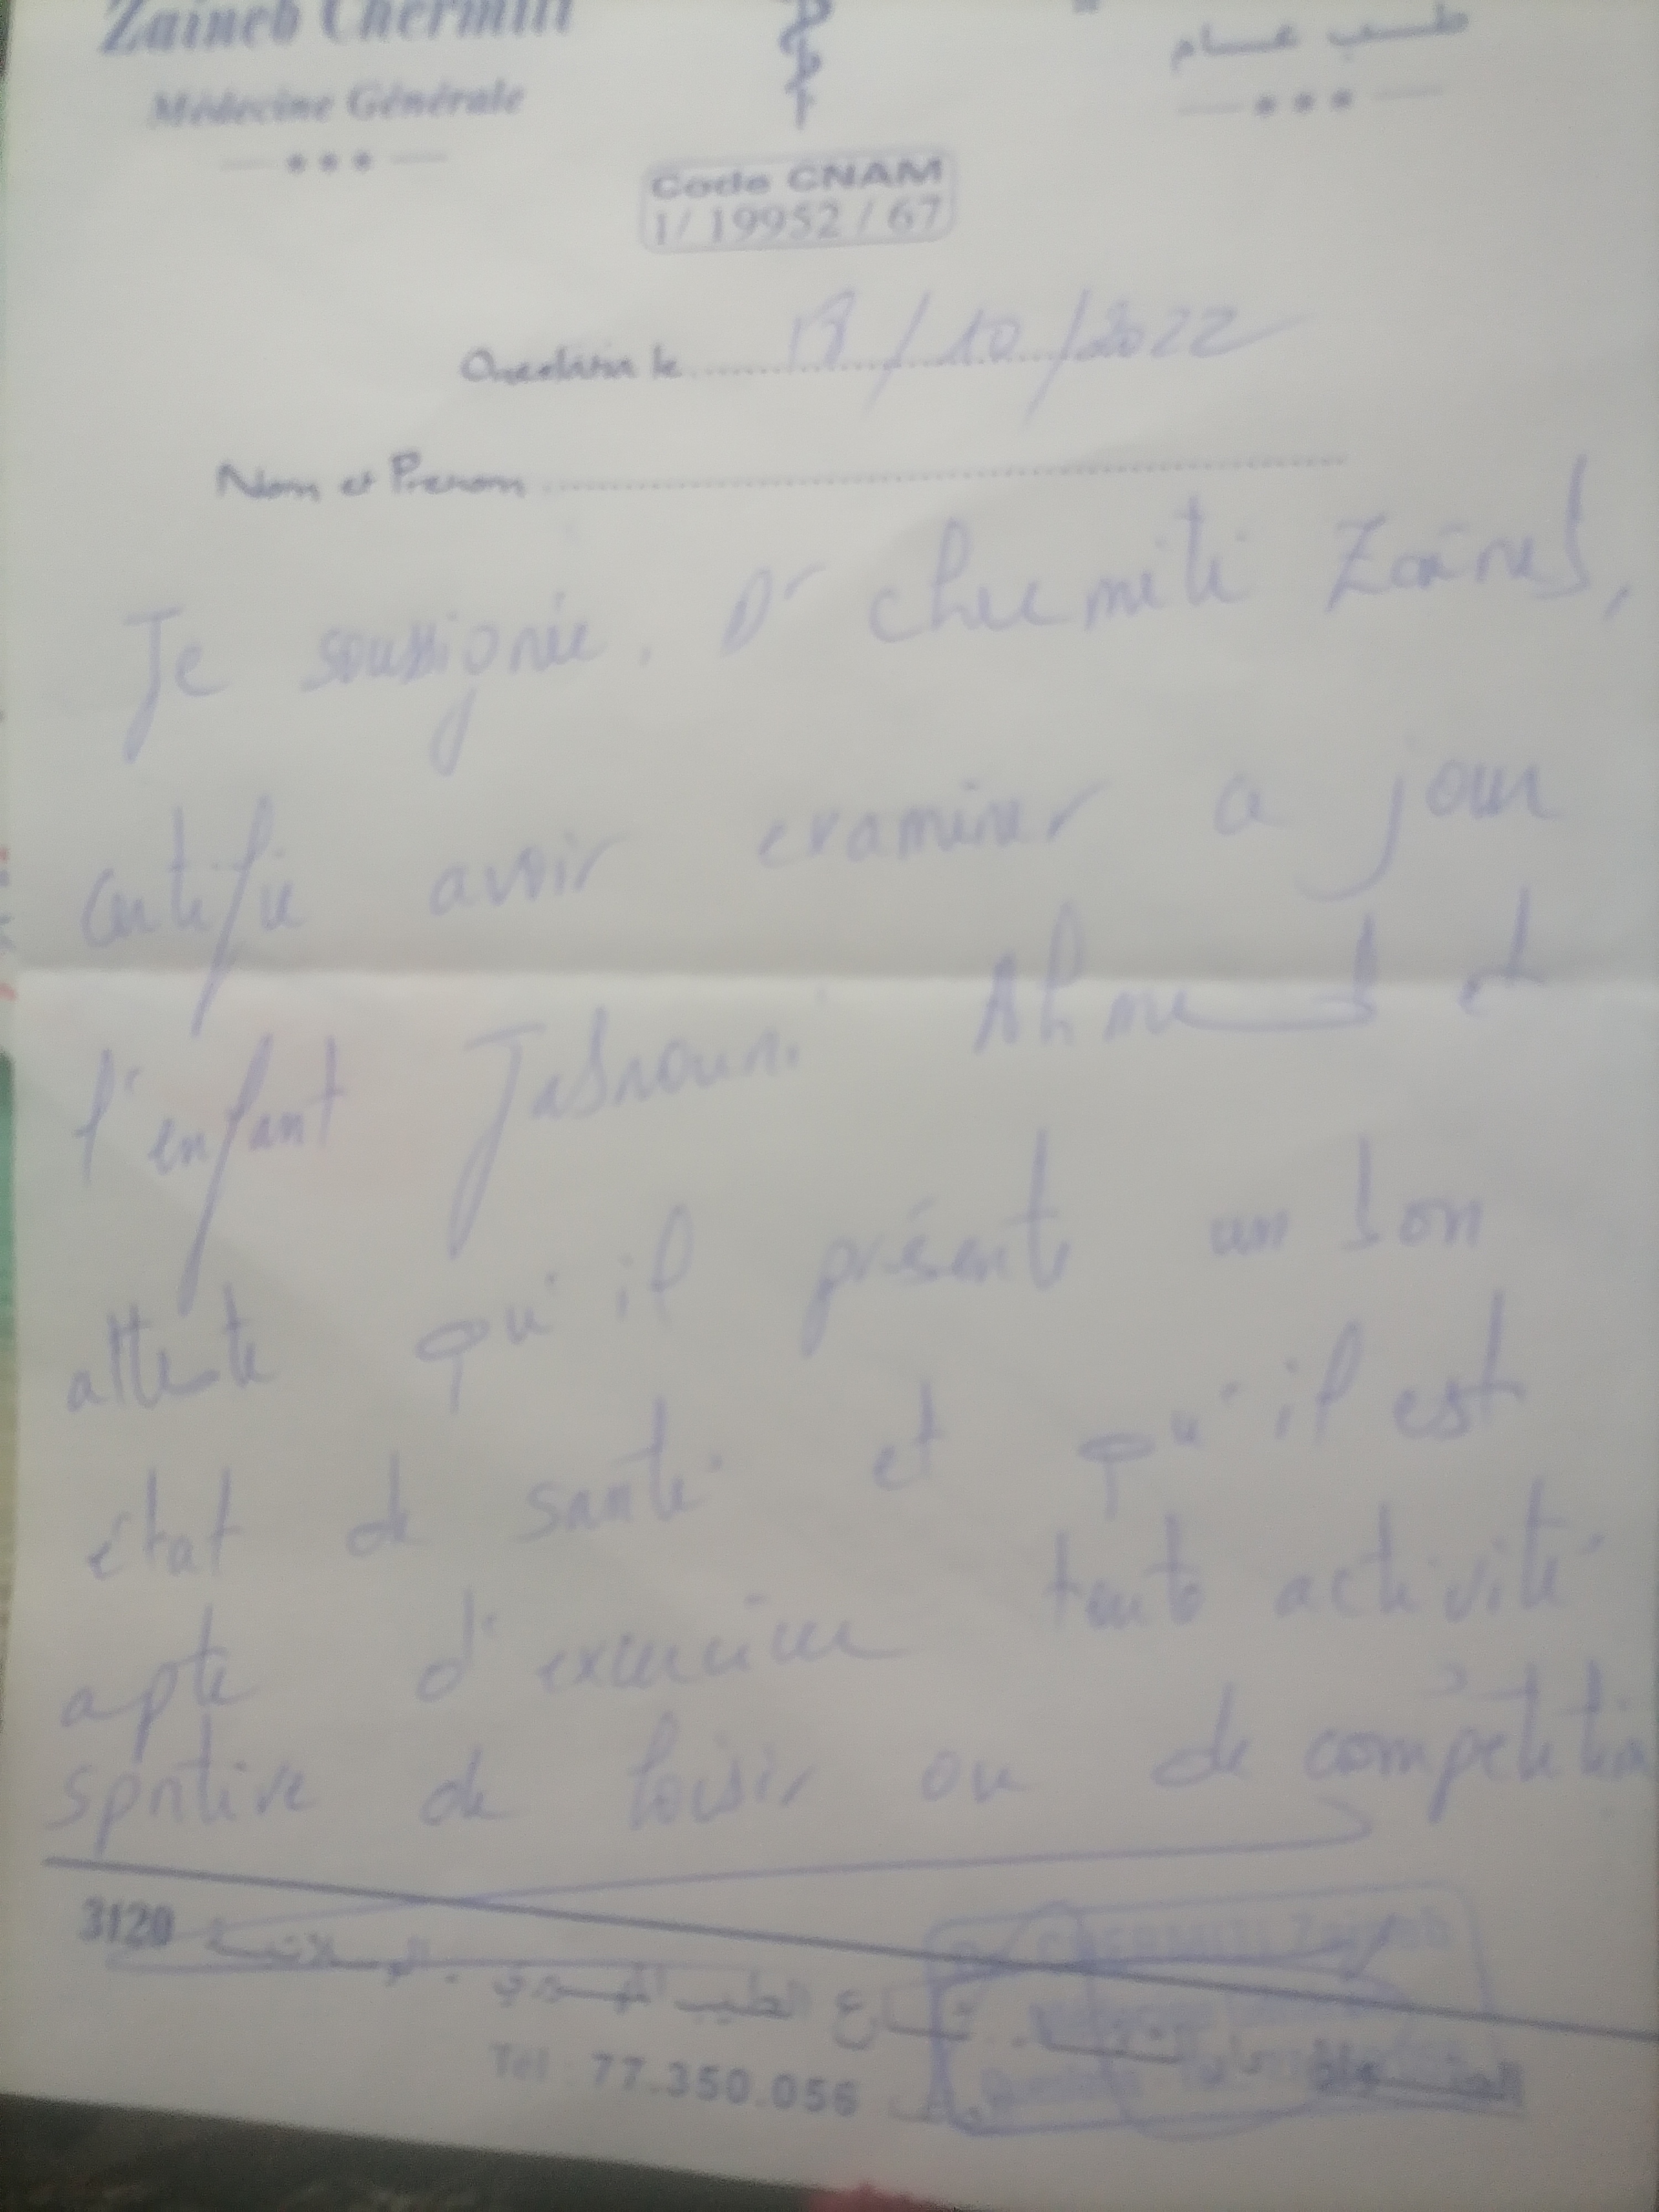 Zaineb Chermiti
طب عام
Médecine Générale
Code CNAM
1/ 19952 / 67
Oueslatia le ........ /10/2022
Nom et Prenom ........
Je soussignée, Dr Chermiti Zaineb,
certifie avoir examiner ce jour
l'enfant Jabnouni Ahmed et
atteste qu'il présente un bon
état de santé et qu'il est
apte d'exercice toute activité
sportive de loisir ou de compétition
شارع الطيب المهيري - الوسلاتية 3120
Tél : 77.350.056